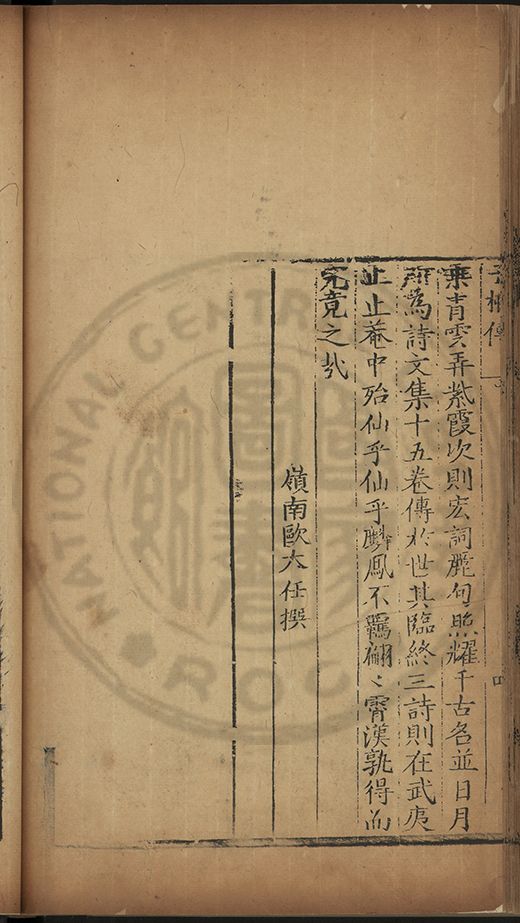 子相傳
乘青雲弄紫霞次則宏詞麗句照耀千古名並日月
所為詩文集十五卷傳於世其臨終三詩則在武夷
止止菴中殆仙乎仙乎麟鳳不羈翩〻霄漢孰得而
究竟之哉
嶺南歐大任撰
NATIONAL CENTR
ROC